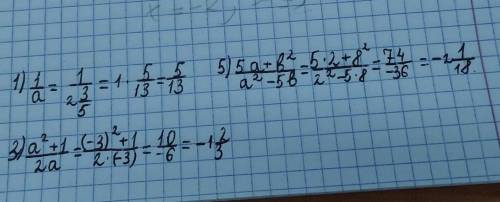 1) 1/a = 1/(2 3/5) = 1 · 5/13 = 5/13
5) (5a + b²)/(a² - 5b) = (5·2 + 8²)/(2² - 5·8) = 74/-36 = -2 1/18.
3) (a² + 1)/(2a) = ((-3)² + 1)/(2·(-3)) = 10/-6 = -1 2/3